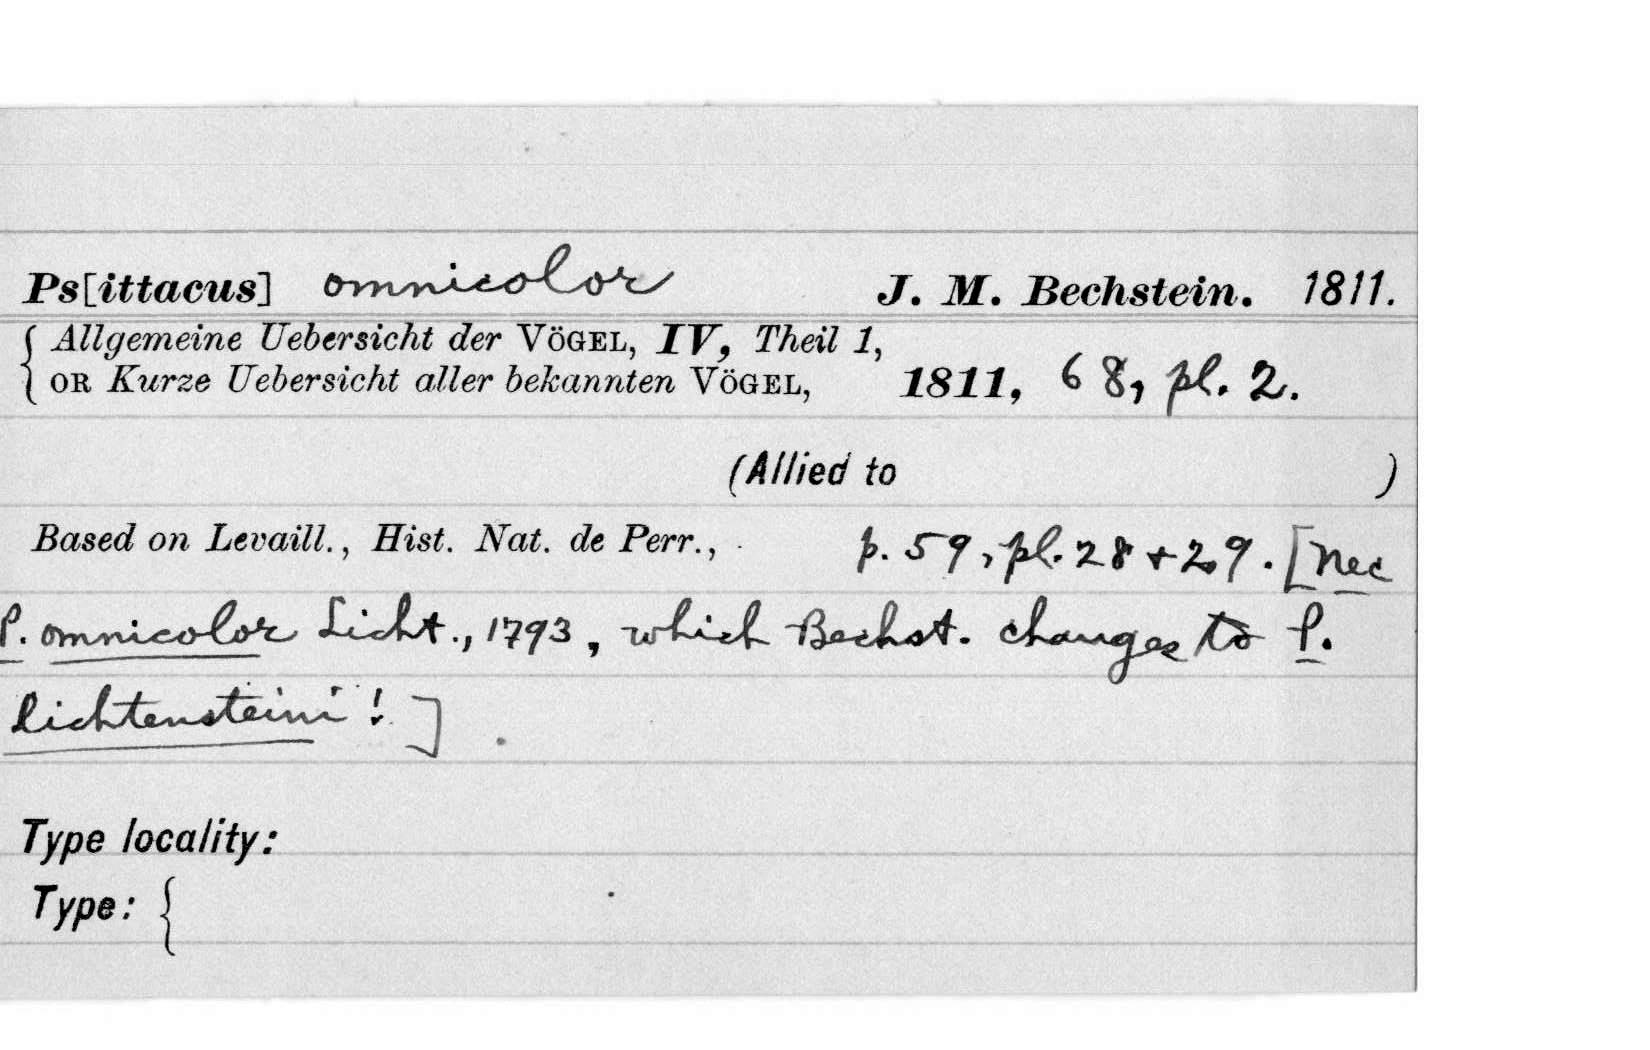 Ps[ittacus] omnicolor J. M. Bechstein. 1811.
{ Allgemeine Uebersicht der VÖGEL, IV, Theil 1,
OR Kurze Uebersicht aller bekannten VÖGEL, 1811, 68, pl. 2.
(Allied to )
Based on Levaill., Hist. Nat. de Perr., p. 59, pl. 28 + 29. [Nec
P. omnicolor Licht., 1793, which Bechst. changes to P.
lichtensteini! ]
Type locality:
Type: {